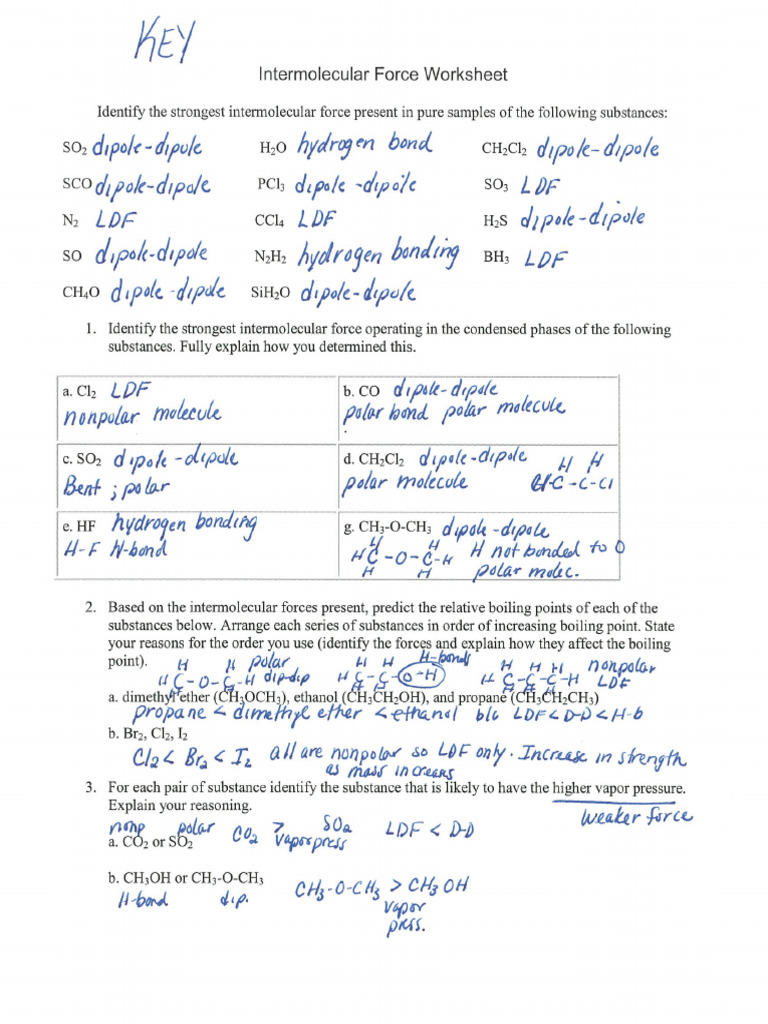 KEY
Intermolecular Force Worksheet
Identify the strongest intermolecular force present in pure samples of the following substances:
SO₂ dipole-dipole H₂O hydrogen bond CH₂Cl₂ dipole-dipole
SCO dipole-dipole PCl₃ dipole-dipole SO₃ LDF
N₂ LDF CCl₄ LDF H₂S dipole-dipole
SO dipole-dipole N₂H₂ hydrogen bonding BH₃ LDF
CH₄O dipole-dipole SiH₂O dipole-dipole
1. Identify the strongest intermolecular force operating in the condensed phases of the following
substances. Fully explain how you determined this.
a. Cl₂ LDF
nonpolar molecule
b. CO dipole-dipole
polar bond polar molecule
c. SO₂ dipole-dipole
Bent ; polar
d. CH₂Cl₂ dipole-dipole
H H
polar molecule Cl-C-C-Cl
e. HF hydrogen bonding
H-F H-bond
g. CH₃-O-CH₃ dipole-dipole
H H
HC-O-C-H H not bonded to O
H H polar molec.
2. Based on the intermolecular forces present, predict the relative boiling points of each of the
substances below. Arrange each series of substances in order of increasing boiling point. State
your reasons for the order you use (identify the forces and explain how they affect the boiling
point).
H H polar H H H-bonds H H H nonpolar
H C-O-C-H dip-dip H C-C-O-H H C-C-C-H LDF
H H H H H H H
a. dimethyl ether (CH₃OCH₃), ethanol (CH₃CH₂OH), and propane (CH₃CH₂CH₃)
propane < dimethyl ether < ethanol b/c LDF < D-D < H-b
b. Br₂, Cl₂, I₂
Cl₂ < Br₂ < I₂ all are nonpolar so LDF only. Increase in strength
as mass increases
3. For each pair of substance identify the substance that is likely to have the higher vapor pressure.
Explain your reasoning.
weaker force
nonp polar CO₂ > SO₂ LDF < D-D
a. CO₂ or SO₂ vapor press
b. CH₃OH or CH₃-O-CH₃
H-bond dip. CH₃-O-CH₃ > CH₃OH
vapor
press.